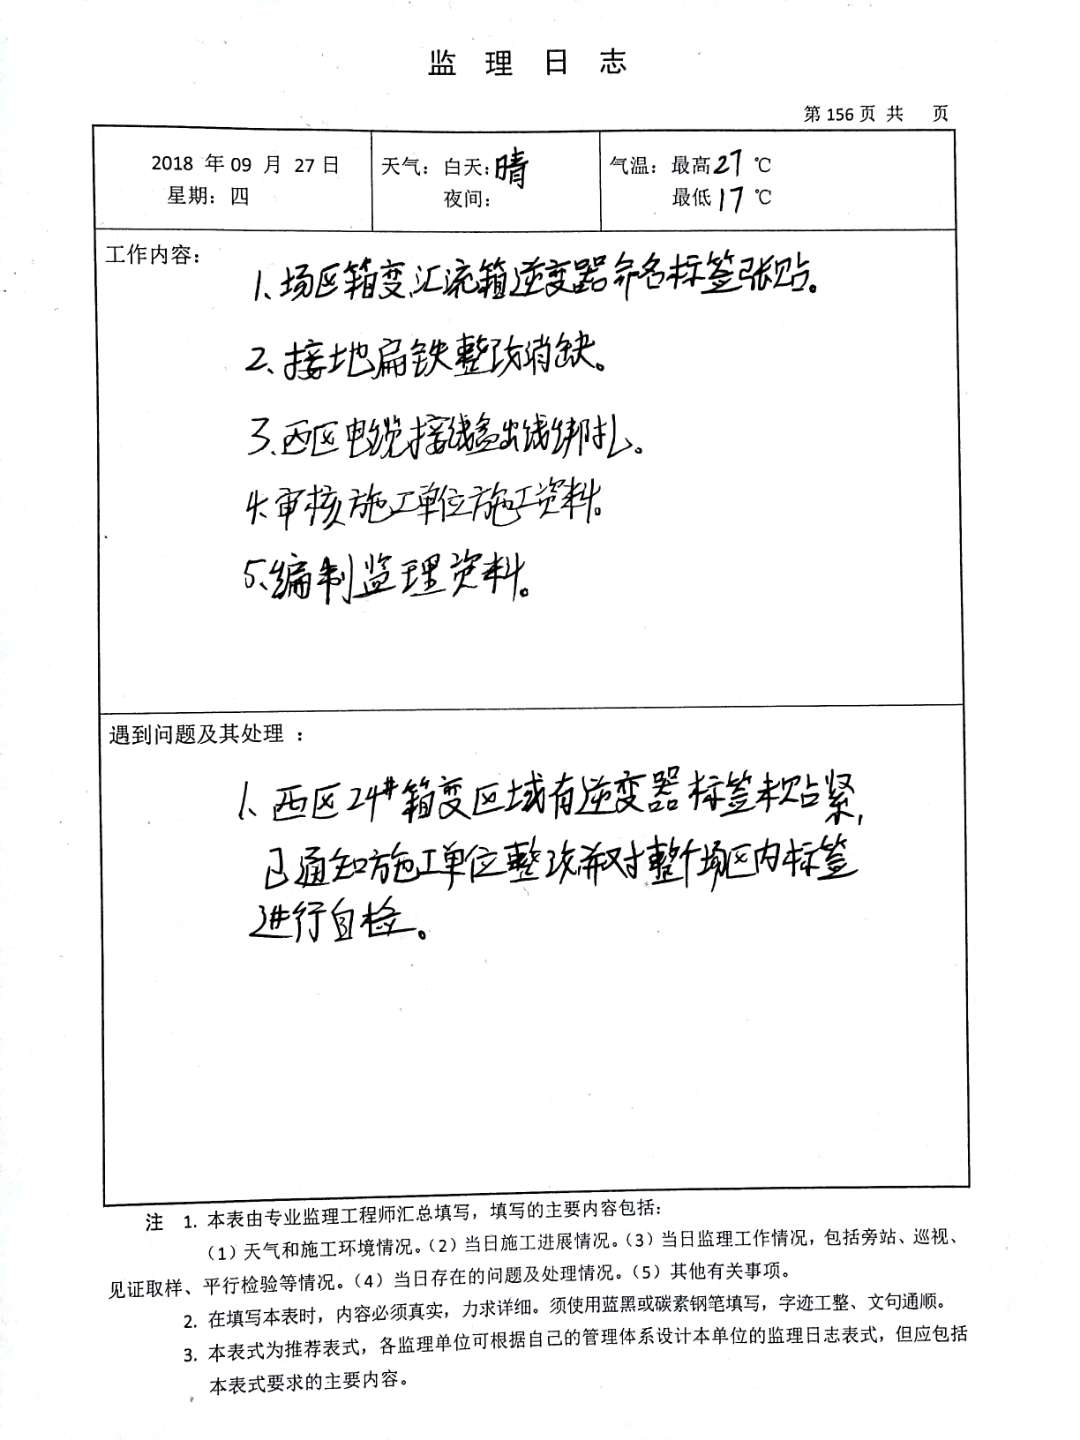 监 理 日 志
第 156 页 共 页
2018 年 09 月 27 日
星期：四
天气：白天：晴
夜间：
气温：最高 27 ℃
最低 17 ℃
工作内容：
1、场区箱变、汇流箱逆变器命名标签张贴。
2、接地扁铁整改消缺。
3、西区电缆接线盒出线绑扎。
4、审核施工单位施工资料。
5、编制监理资料。
遇到问题及其处理 ：
1、西区24#箱变区域有逆变器标签未贴紧，
已通知施工单位整改并对整个场区内标签
进行自检。
注 1. 本表由专业监理工程师汇总填写，填写的主要内容包括：
（1）天气和施工环境情况。（2）当日施工进展情况。（3）当日监理工作情况，包括旁站、巡视、
见证取样、平行检验等情况。（4）当日存在的问题及处理情况。（5）其他有关事项。
2. 在填写本表时，内容必须真实，力求详细。须使用蓝黑或碳素钢笔填写，字迹工整、文句通顺。
3. 本表式为推荐表式，各监理单位可根据自己的管理体系设计本单位的监理日志表式，但应包括
本表式要求的主要内容。